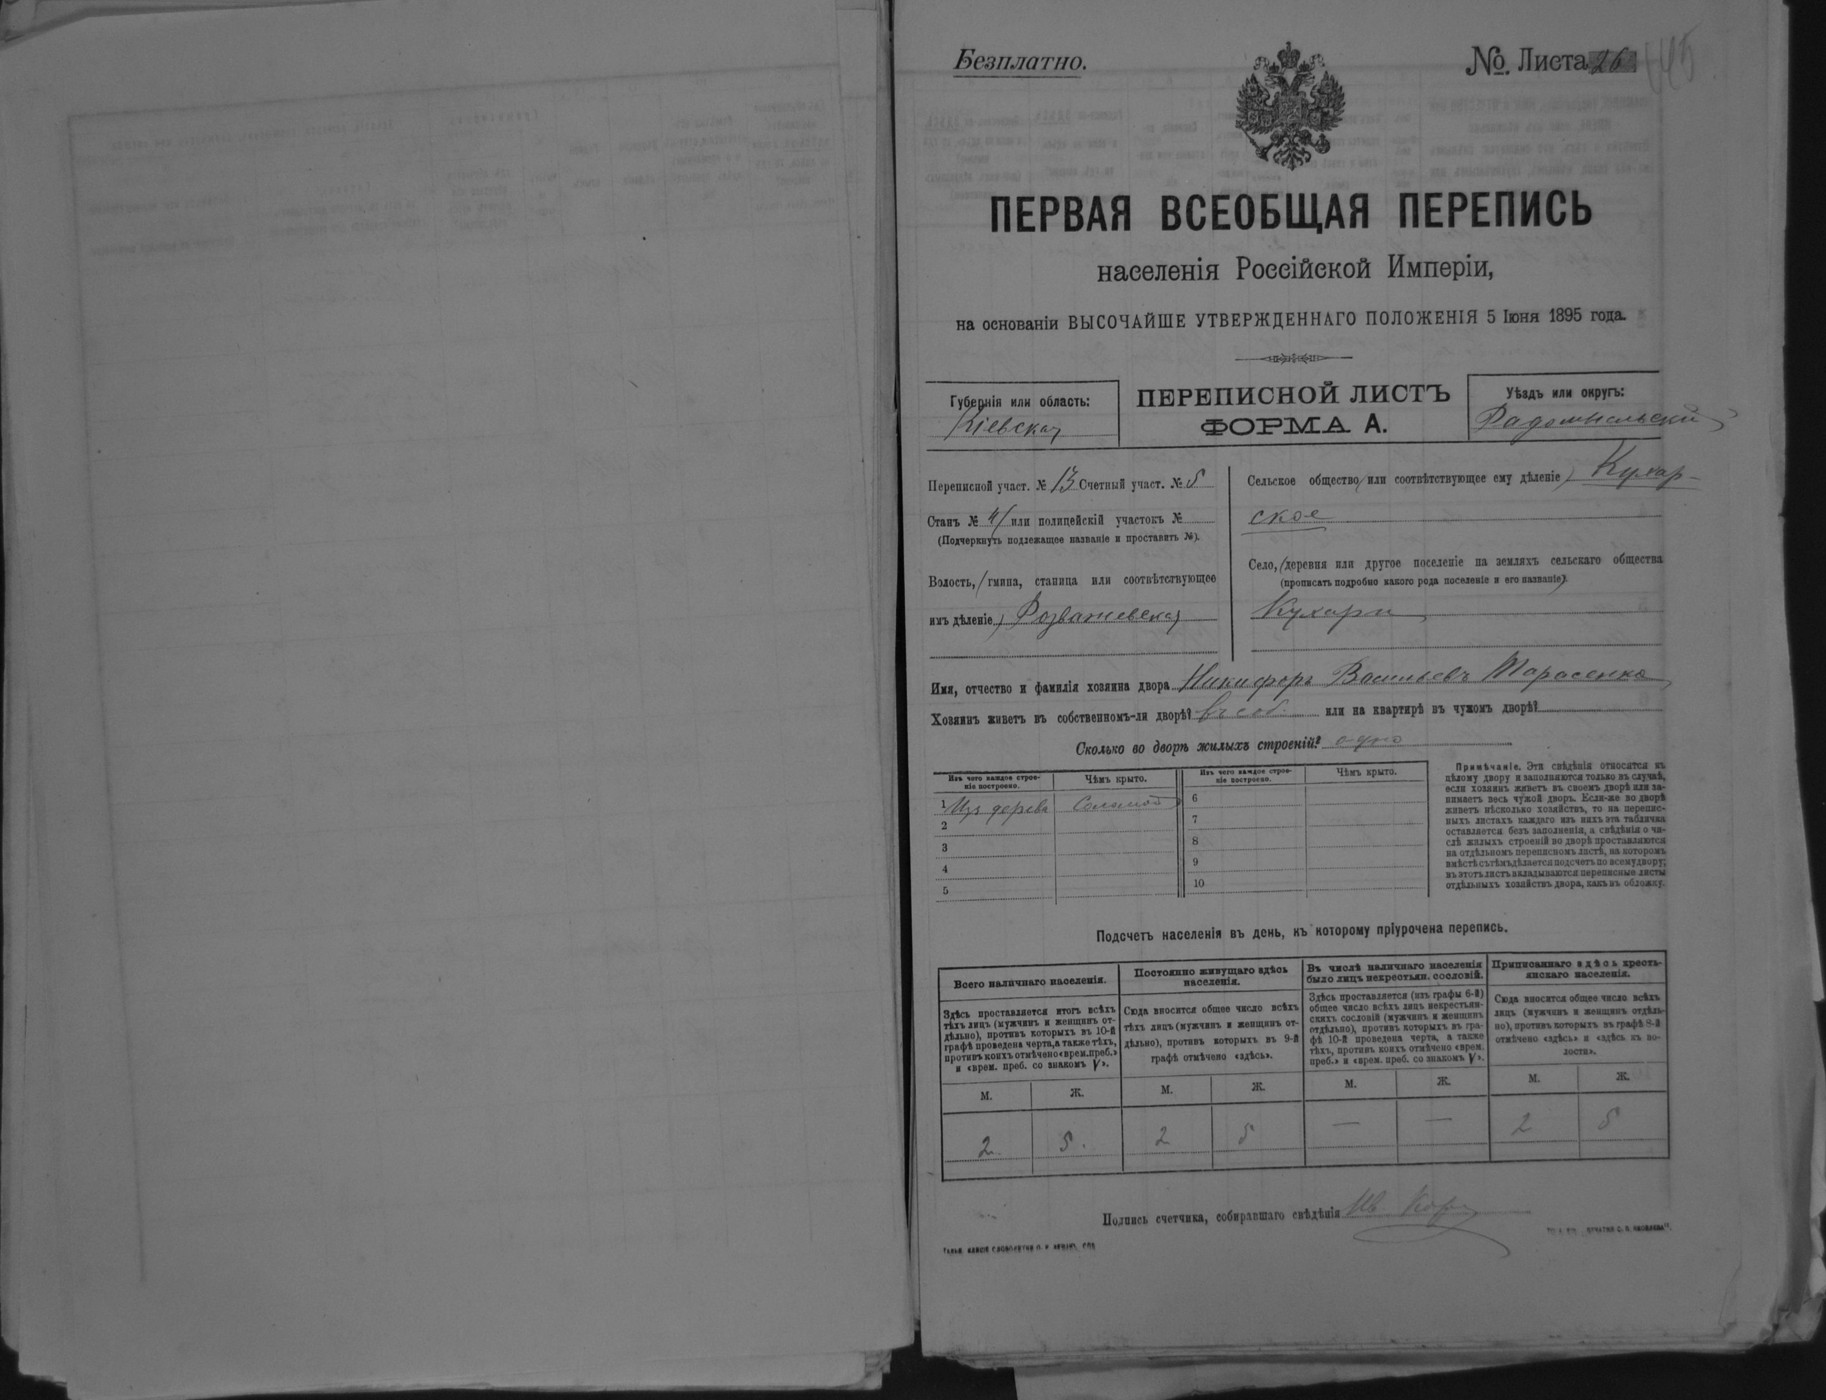 Безплатно.
№. Листа 26
ПЕРВАЯ ВСЕОБЩАЯ ПЕРЕПИСЬ
населенія Россійской Имперіи,
на основаніи ВЫСОЧАЙШЕ УТВЕРЖДЕННАГО ПОЛОЖЕНІЯ 5 Іюня 1895 года.
Губернія или область:
Кіевская
ПЕРЕПИСНОЙ ЛИСТЪ
ФОРМА А.
Уѣздъ или округъ:
Радомысльскій
Переписной участ. № 13 Счетный участ. № 5
Станъ № 4 / или полицейскій участокъ №
(Подчеркнуть подлежащее названіе и проставить №).
Волость, (гмина, станица или соотвѣтствующее
имъ дѣленіе) Розважевская
Сельское общество (или соотвѣтствующее ему дѣленіе) Кухар-
ское
Село, (деревня или другое поселеніе на земляхъ сельскаго общества
(прописать подробно какого рода поселеніе и его названіе)
Кухари
Имя, отчество и фамилія хозяина двора Никифоръ Васильевъ Тарасенко
Хозяинъ живетъ въ собственномъ-ли дворѣ? въ соб. или на квартирѣ въ чужомъ дворѣ?
Сколько во дворѣ жилыхъ строеній? одно
Изъ чего каждое строе-
ніе построено.
Чѣмъ крыто.
Изъ чего каждое строе-
ніе построено.
Чѣмъ крыто.
1 Изъ дерева Соломой
2
3
4
5
6
7
8
9
10
Примѣчаніе. Эти свѣдѣнія относятся къ
цѣлому двору и заполняются только въ случаѣ,
если хозяинъ живетъ въ своемъ дворѣ или за-
нимаетъ весь чужой дворъ. Если-же во дворѣ
живетъ нѣсколько хозяйствъ, то на перепис-
ныхъ листахъ каждаго изъ нихъ эта табличка
оставляется безъ заполненія, а свѣдѣнія о чи-
слѣ жилыхъ строеній во дворѣ проставляются
на отдѣльномъ переписномъ листѣ, на которомъ
вмѣстѣ съ тѣмъ дѣлается подсчетъ по всему двору;
въ этотъ листъ вкладываются переписные листы
отдѣльныхъ хозяйствъ двора, какъ въ обложку.
Подсчетъ населенія въ день, къ которому пріурочена перепись.
Всего наличнаго населенія.
Здѣсь проставляется итогъ всѣхъ
тѣхъ лицъ (мужчинъ и женщинъ от-
дѣльно), противъ которыхъ въ 10-й
графѣ проведена черта, а также тѣхъ,
противъ коихъ отмѣчено «врем. преб.»
и «врем. преб. со знакомъ V».
Постоянно живущаго здѣсь
населенія.
Сюда вносится общее число всѣхъ
тѣхъ лицъ (мужчинъ и женщинъ от-
дѣльно), противъ которыхъ въ 9-й
графѣ отмѣчено «здѣсь».
Въ числѣ наличнаго населенія
было лицъ некрестьян. сословій.
Здѣсь проставляется (изъ графы 6-й)
общее число всѣхъ лицъ некрестьян-
скихъ сословій (мужчинъ и женщинъ
отдѣльно), противъ которыхъ въ гра-
фѣ 10-й проведена черта, а также
тѣхъ, противъ коихъ отмѣчено «врем.
преб.» и «врем. преб. со знакомъ V».
Приписаннаго здѣсь кресть-
янскаго населенія.
Сюда вносится общее число всѣхъ
лицъ (мужчинъ и женщинъ отдѣль-
но), противъ которыхъ въ графѣ 8-й
отмѣчено «здѣсь» и «здѣсь въ во-
лости».
М. Ж. М. Ж. М. Ж. М. Ж.
2 5. 2 5 — — 2 5
Подпись счетчика, собиравшаго свѣдѣнія